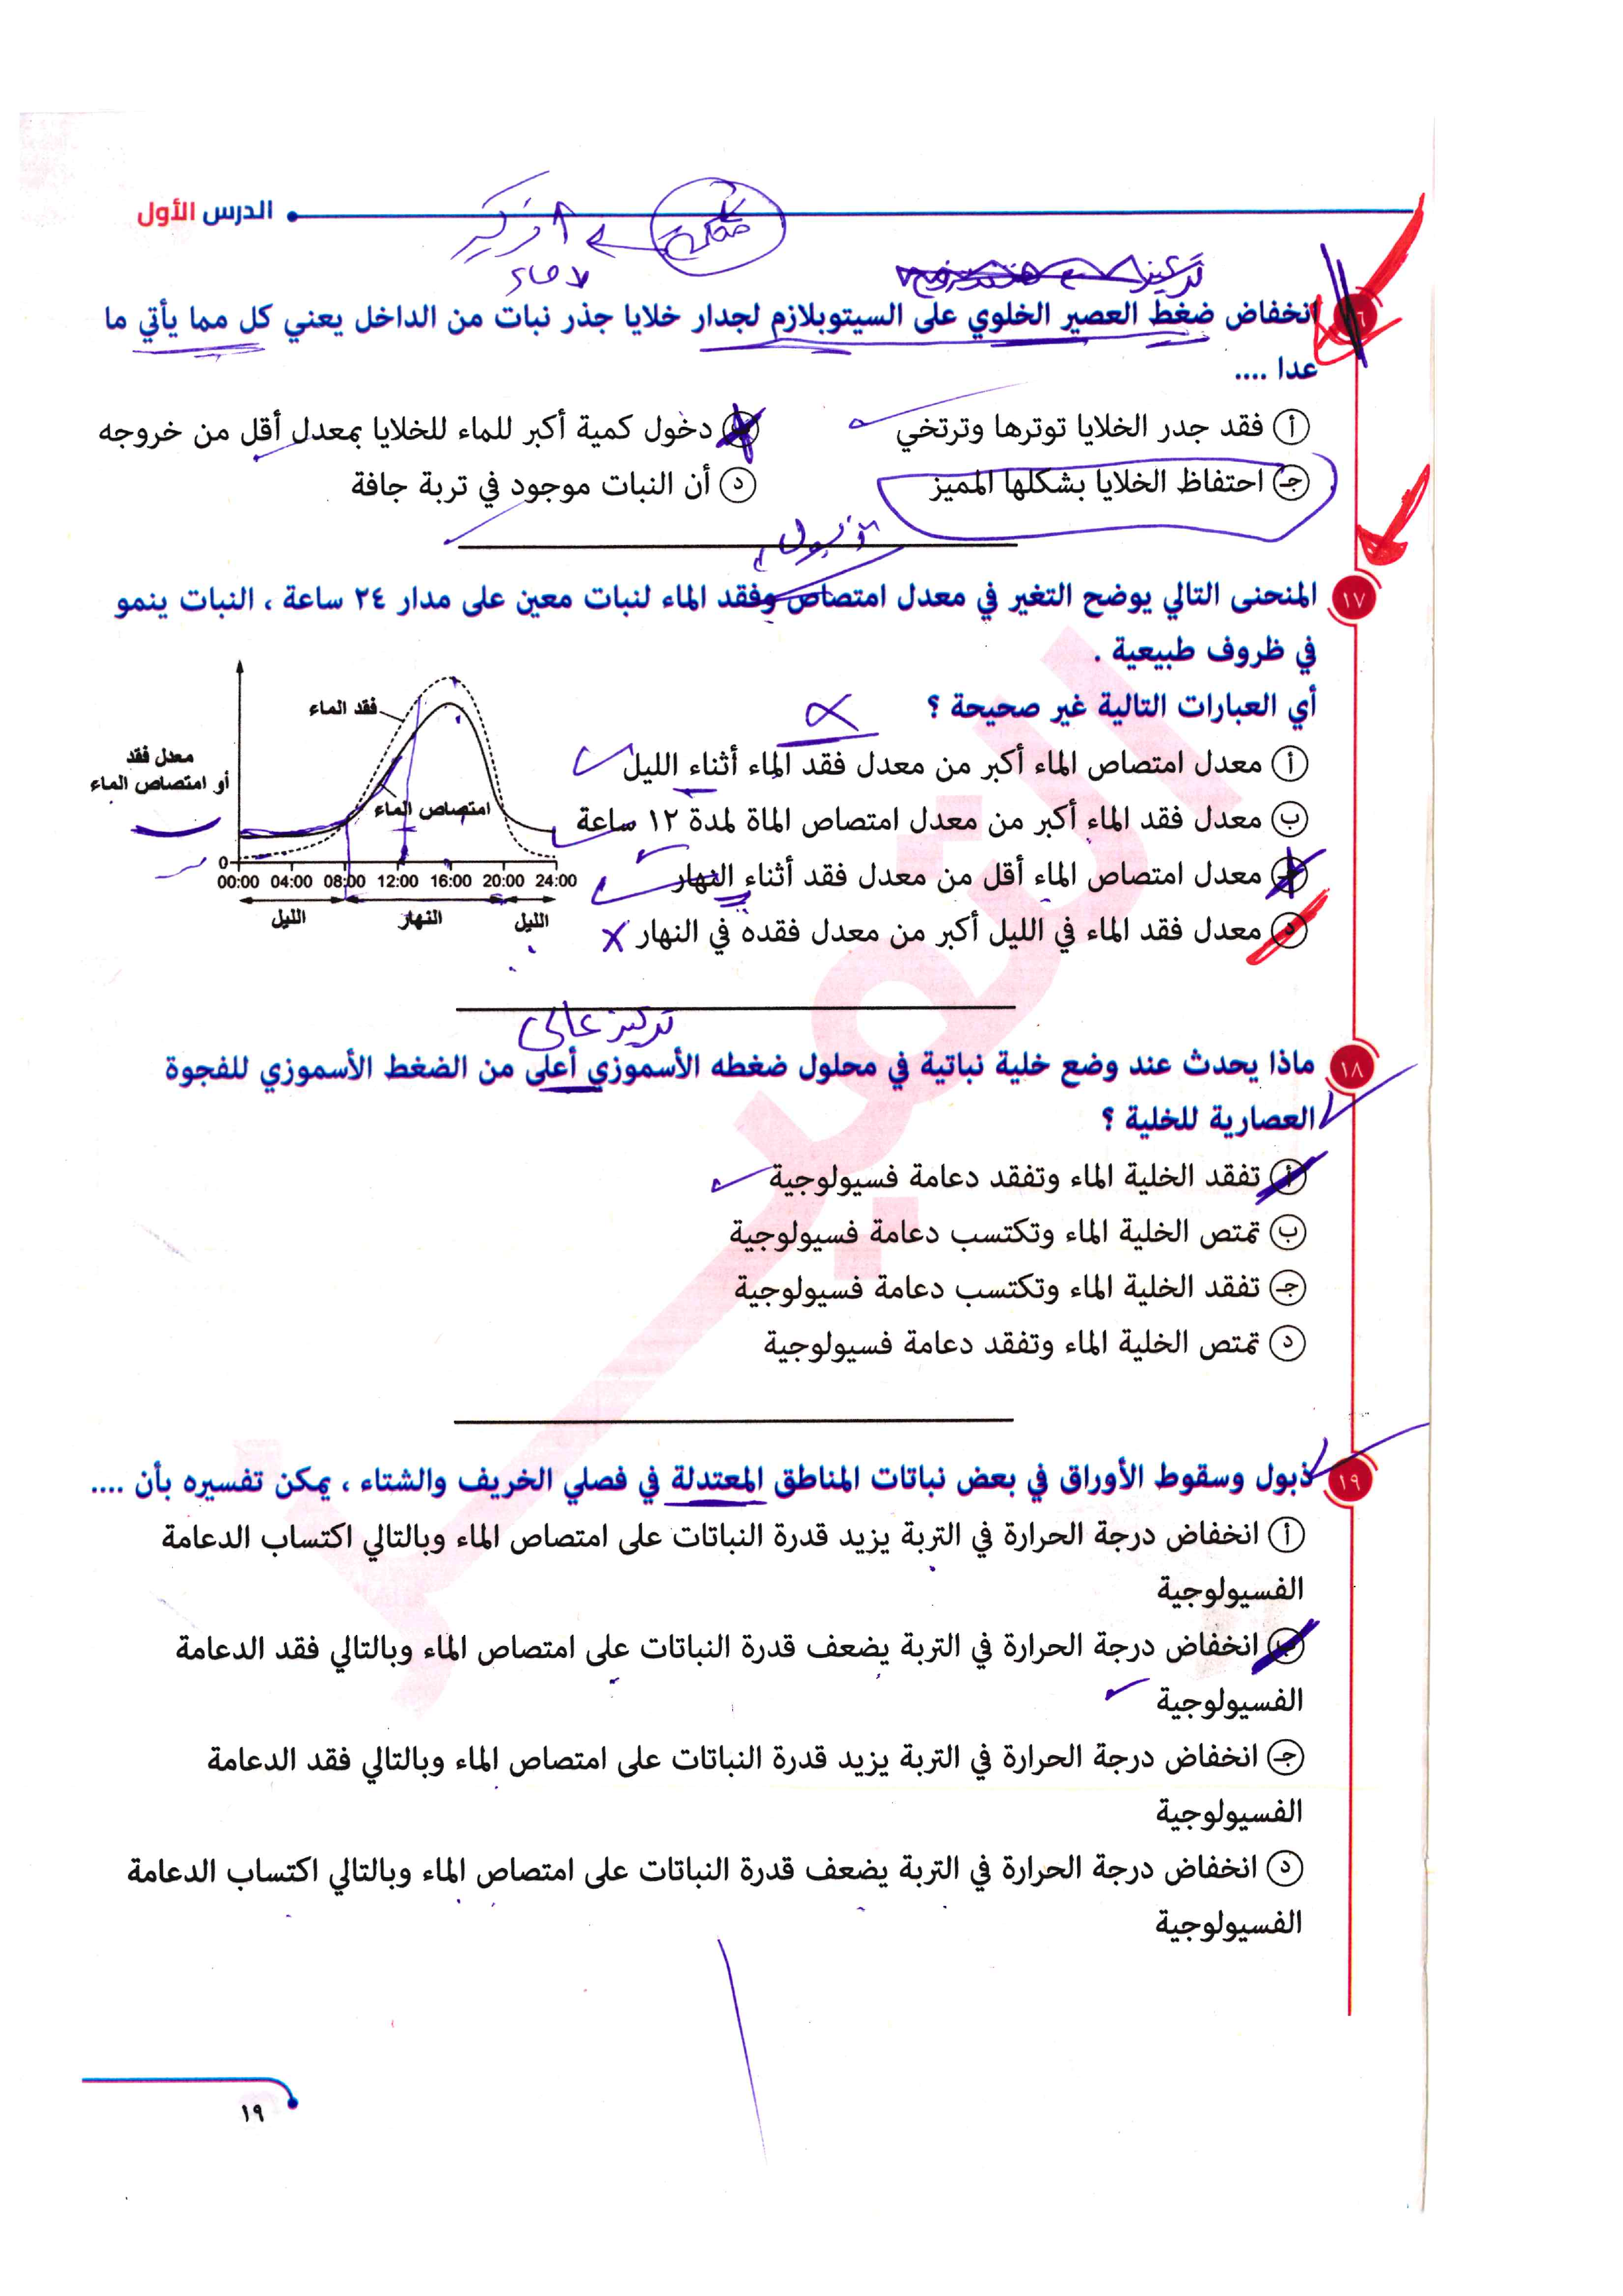 الدرس الأول
تركيز
انخفاض ضغط العصير الخلوي على السيتوبلازم لجدار خلايا جذر نبات من الداخل يعني كل مما يأتي ما
عدا ....
أ فقد جدر الخلايا توترها وترتخي
ب دخول كمية أكبر للماء للخلايا بمعدل أقل من خروجه
جـ احتفاظ الخلايا بشكلها المميز
د أن النبات موجود في تربة جافة
١٧ المنحنى التالي يوضح التغير في معدل امتصاص وفقد الماء لنبات معين على مدار ٢٤ ساعة ، النبات ينمو
في ظروف طبيعية .
أي العبارات التالية غير صحيحة ؟
أ معدل امتصاص الماء أكبر من معدل فقد الماء أثناء الليل
ب معدل فقد الماء أكبر من معدل امتصاص الماة لمدة ١٢ ساعة
جـ معدل امتصاص الماء أقل من معدل فقد أثناء النهار
د معدل فقد الماء في الليل أكبر من معدل فقده في النهار
فقد الماء
معدل فقد
أو امتصاص الماء
امتصاص الماء
0
00:00 04:00 08:00 12:00 16:00 20:00 24:00
الليل النهار الليل
تركيز عالى
١٨ ماذا يحدث عند وضع خلية نباتية في محلول ضغطه الأسموزي أعلى من الضغط الأسموزي للفجوة
العصارية للخلية ؟
أ تفقد الخلية الماء وتفقد دعامة فسيولوجية
ب تمتص الخلية الماء وتكتسب دعامة فسيولوجية
جـ تفقد الخلية الماء وتكتسب دعامة فسيولوجية
د تمتص الخلية الماء وتفقد دعامة فسيولوجية
١٩ ذبول وسقوط الأوراق في بعض نباتات المناطق المعتدلة في فصلي الخريف والشتاء ، يمكن تفسيره بأن ....
أ انخفاض درجة الحرارة في التربة يزيد قدرة النباتات على امتصاص الماء وبالتالي اكتساب الدعامة
الفسيولوجية
ب انخفاض درجة الحرارة في التربة يضعف قدرة النباتات على امتصاص الماء وبالتالي فقد الدعامة
الفسيولوجية
جـ انخفاض درجة الحرارة في التربة يزيد قدرة النباتات على امتصاص الماء وبالتالي فقد الدعامة
الفسيولوجية
د انخفاض درجة الحرارة في التربة يضعف قدرة النباتات على امتصاص الماء وبالتالي اكتساب الدعامة
الفسيولوجية
١٩